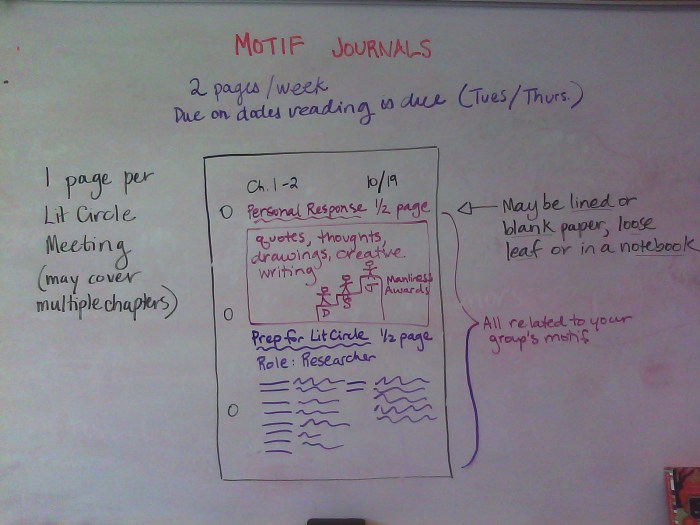 MOTIF JOURNALS
2 pages/week
Due on dates reading is due (Tues/Thurs.)
1 page per
Lit Circle
Meeting
(may cover
multiple chapters)
Ch. 1-2 10/19
Personal Response 1/2 page
quotes, thoughts,
drawings, creative
writing
D
S
J
Manliness
Awards
Prep for Lit Circle 1/2 page
Role: Researcher
May be lined or
blank paper, loose
leaf or in a notebook
All related to your
group's motif